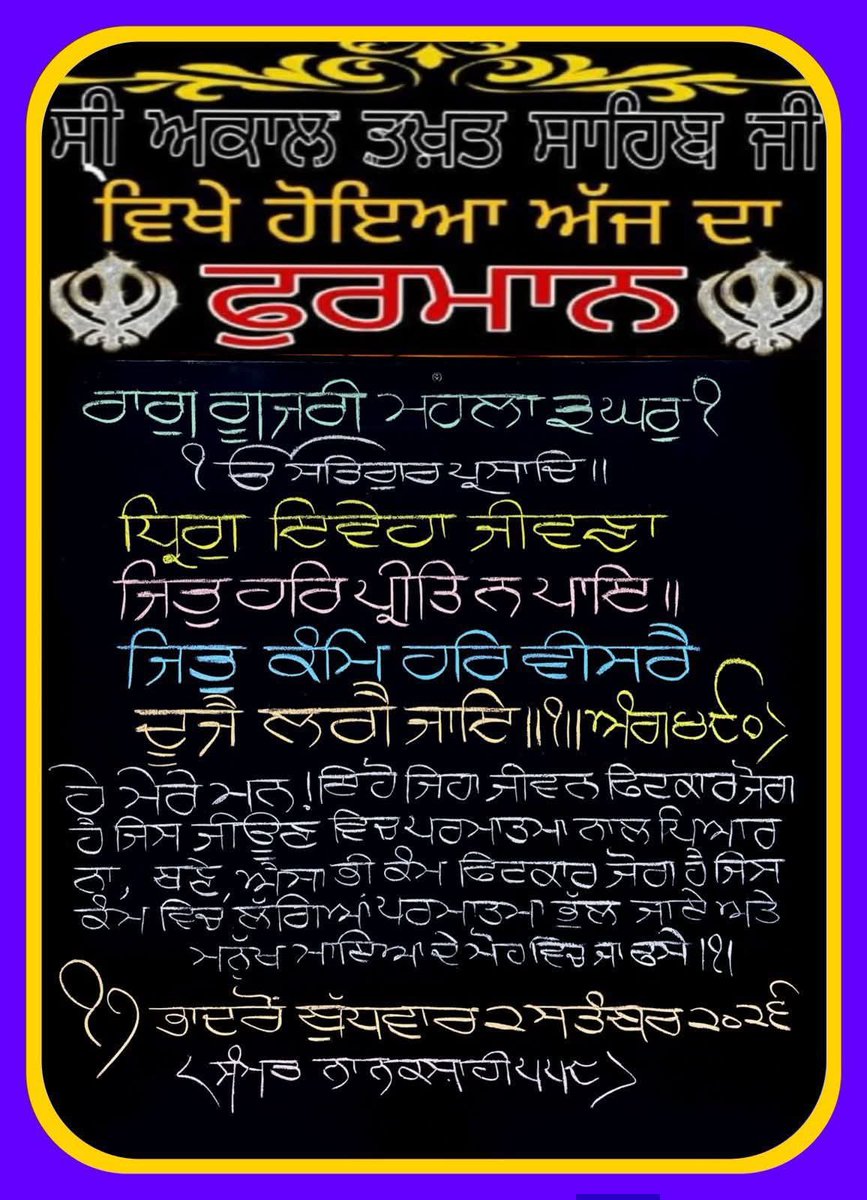 ਸ੍ਰੀ ਅਕਾਲ ਤਖ਼ਤ ਸਾਹਿਬ ਜੀ
ਵਿਖੇ ਹੋਇਆ ਅੱਜ ਦਾ
ਫੁਰਮਾਨ
ਰਾਗੁ ਗੂਜਰੀ ਮਹਲਾ ੩ ਘਰੁ ੧
੧ ਓ ਸਤਿਗੁਰ ਪ੍ਰਸਾਦਿ॥
ਧ੍ਰਿਗੁ ਇਵੇਹਾ ਜੀਵਣਾ
ਜਿਤੁ ਹਰਿ ਪ੍ਰੀਤਿ ਨ ਪਾਇ॥
ਜਿਤੁ ਕੰਮਿ ਹਰਿ ਵੀਸਰੈ
ਦੂਜੈ ਲਗੈ ਜਾਇ॥੧॥ਅੰਗ੪੯੦)
ਹੇ ਮੇਰੇ ਮਨ! ਇਹੋ ਜਿਹਾ ਜੀਵਨ ਫਿਟਕਾਰ ਜੋਗ
ਹੈ ਜਿਸ ਜੀਊਣ ਵਿਚ ਪਰਮਾਤਮਾ ਨਾਲ ਪਿਆਰ
ਨਾ, ਬਣੇ, ਐਸਾ ਭੀ ਕੰਮ ਫਿਟਕਾਰ ਜੋਗ ਹੈ ਜਿਸ
ਕੰਮ ਵਿਚ ਲੱਗਿਆਂ ਪਰਮਾਤਮਾ ਭੁੱਲ ਜਾਏ ਅਤੇ
ਮਨੁੱਖ ਮਾਇਆ ਦੇ ਮੋਹ ਵਿਚ ਜਾ ਫਸੇ।੧।
੧੭ ਭਾਦਰੋਂ ਬੁੱਧਵਾਰ ੨ ਸਤੰਬਰ ੨੦੨੬
(ਸੰਮਤ ਨਾਨਕਸ਼ਾਹੀ ੫੫੮)